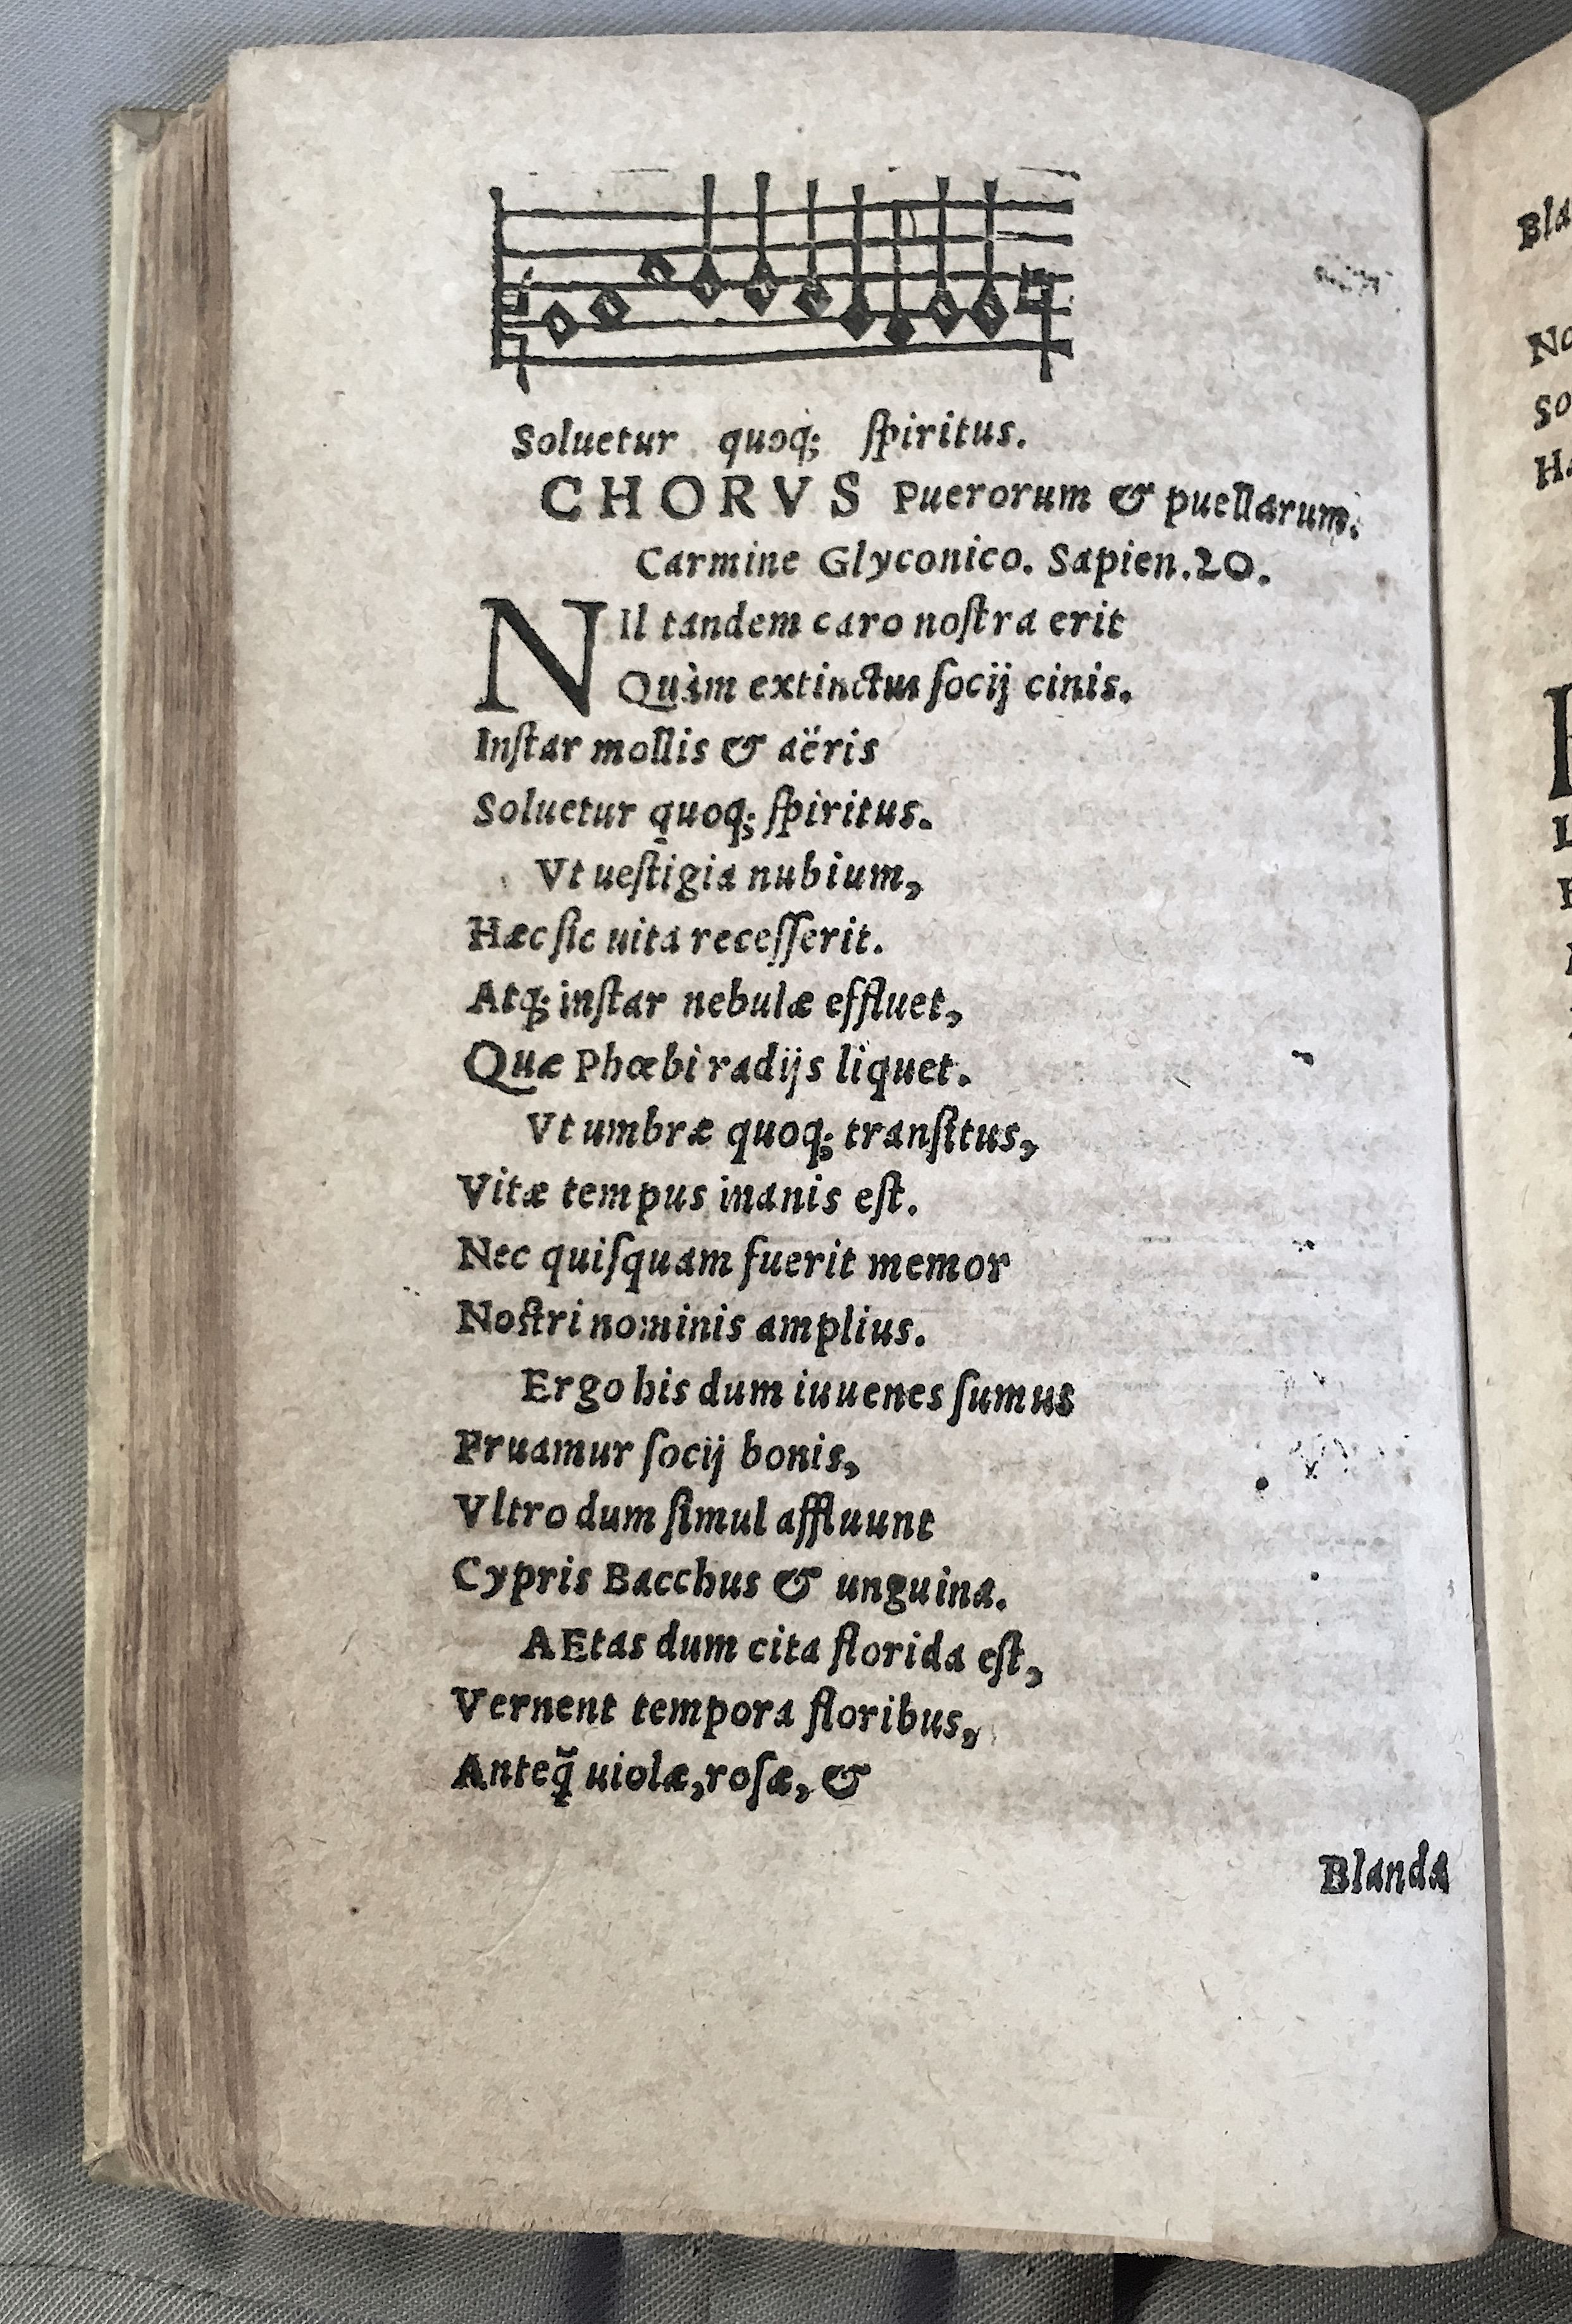 Soluetur quoq; ſpiritus.
CHORVS Puerorum & puellarum.
Carmine Glyconico. Sapien.20.
NIl tandem caro noſtra erit
Quàm extinctus ſocij cinis.
Inſtar mollis & aëris
Soluetur quoq; ſpiritus.
Vt ueſtigia nubium,
Hæc ſic uita receſſerit.
Atq; inſtar nebulæ effluet,
Quæ Phœbi radijs liquet.
Vt umbræ quoq; tranſitus,
Vitæ tempus inanis eſt.
Nec quiſquam fuerit memor
Noſtri nominis amplius.
Ergo his dum iuuenes ſumus
Fruamur ſocij bonis,
Vltro dum ſimul affluunt
Cypris Bacchus & unguina.
AEtas dum cita florida eſt,
Vernent tempora floribus,
Anteq̃ uiolæ, roſæ, &
Blanda
Bla
No
So
Ha